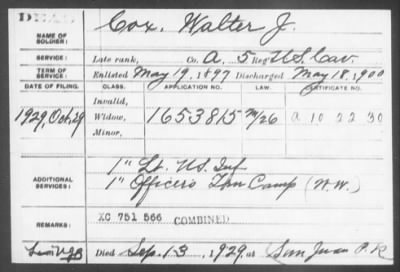 DEAD
NAME OF SOLDIER: Cox, Walter J.
SERVICE: Late rank, Co. A, 5 Reg't U.S. Cav.
TERM OF SERVICE: Enlisted May 19, 1897 Discharged May 18, 1900
DATE OF FILING. CLASS. APPLICATION NO. LAW. CERTIFICATE NO.
Invalid,
1929, Oct, 29 Widow, 1653815 m/26 a 10 22 30
Minor,
ADDITIONAL SERVICES: 1" Lt. U.S. Inf
1" Officers Trn Camp (W.W.)
REMARKS: XC 751 566 COMBINED
Died Sep. 13, 1929, at San Juan P.R